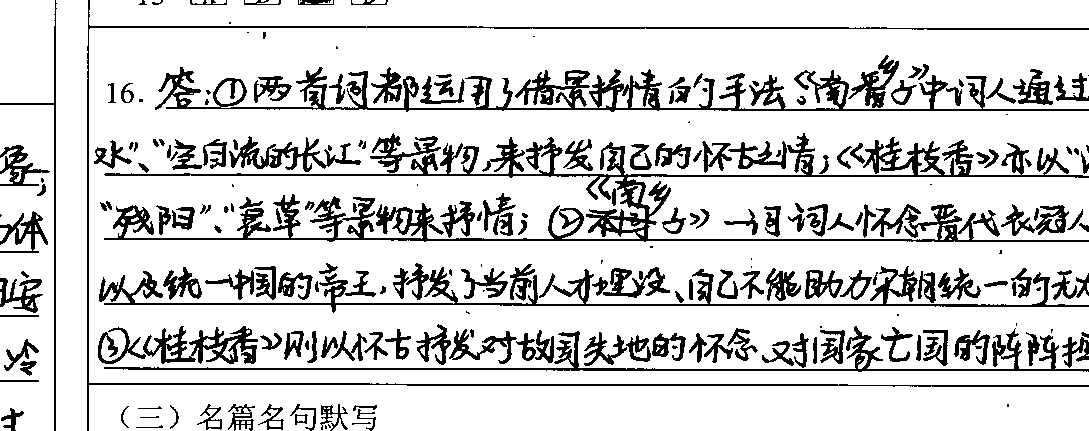 16. 答:①两首词都运用了借景抒情的手法。《南乡子》中词人通过
水”、“空自流的长江”等景物,来抒发自己的怀古之情;《桂枝香》亦以“
象;
“残阳”、“衰草”等景物来抒情;②《南乡子》一词词人怀念晋代衣冠人
体
以及统一中国的帝王,抒发了当前人才埋没、自己不能助力宋朝统一的无
安
③《桂枝香》则以怀古抒发对故国失地的怀念、对国家亡国的阵阵担
冷
(三)名篇名句默写